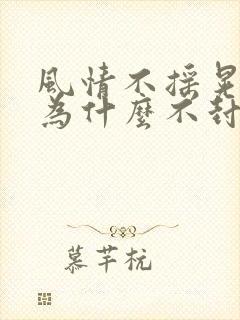 風情不摇晃
為什麼不封
慕芊杭